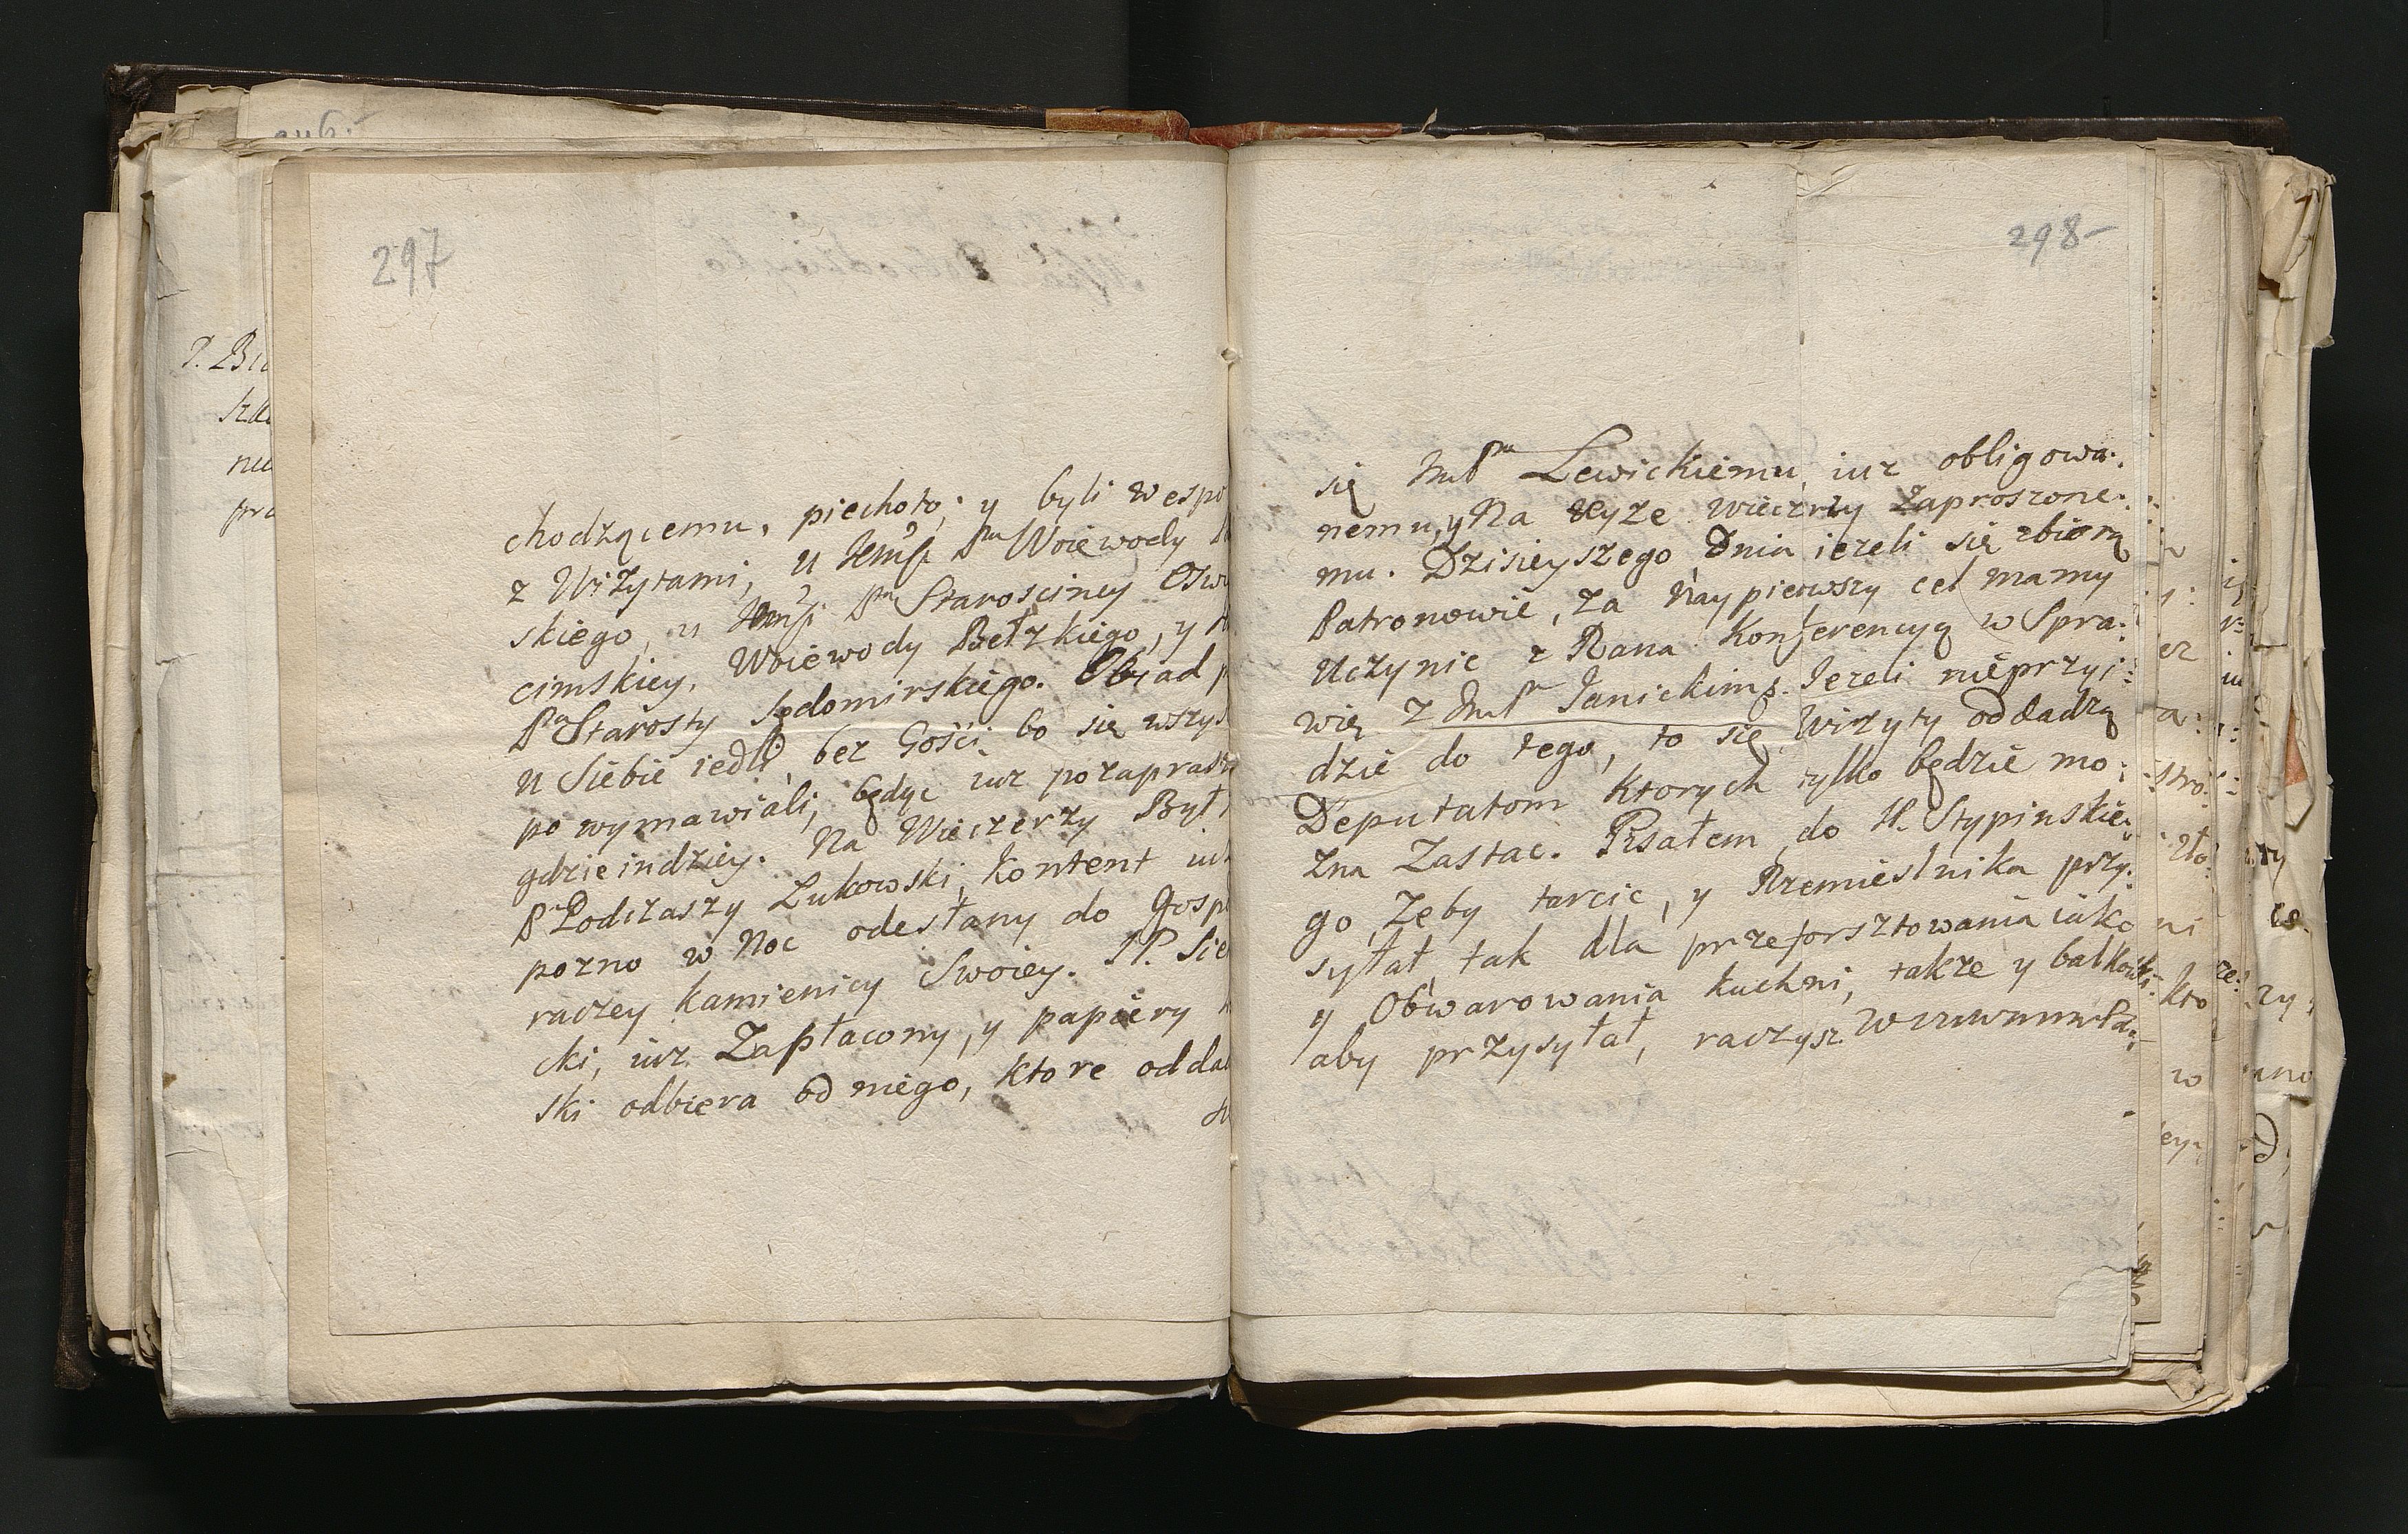 297
chodzącemu, piechoto; y byli wespo
z Wizytami, u Jmści Pna Woiewody
skiego, u Jmści Pni Starosciney Osw
cimskiey, Woiewody Bełzkiego, y
Pna Starosty Sędomirskiego. Obiad p
u Siebie iedli, bez Gości, bo się wszys
powymawiali, będąc iuz pozaprasz
gdzieindziey. Na Wieczerzy Był
Pn Podczaszy Łukowski, kontent iuz
pozno w Noc odesłany do Gosp
raczey kamienicy Swoiey. JP. Sie
cki, iuz Zapłacony, y papiery
ski odbiera od niego, ktore odda
298
się Jmb Pnu Lewickiemu, iuz obligowa:
nemu, y Na teyze wieczerzy zaproszone:
mu. Dzisieyszego Dnia iezeli się zbiorą
Patronowie, za Naypierwszy cel mamy
Uczynic z Rana Konferencyą w Spra:
wię z Jmb Pn Janickim. Iezeli nieprzyi:
dzie do tego, to się Wizyty oddadzą
Deputatom ktorych tylko będzie mo:
zna Zastac. Pisałem do JP. Stypinskie:
go, Zeby tarcic, y Rzemieslnika przy:
syłał, tak dla przeforsztowania iako
y Obwarowania kuchni, takze y balkow
aby przysyłał, raczysz